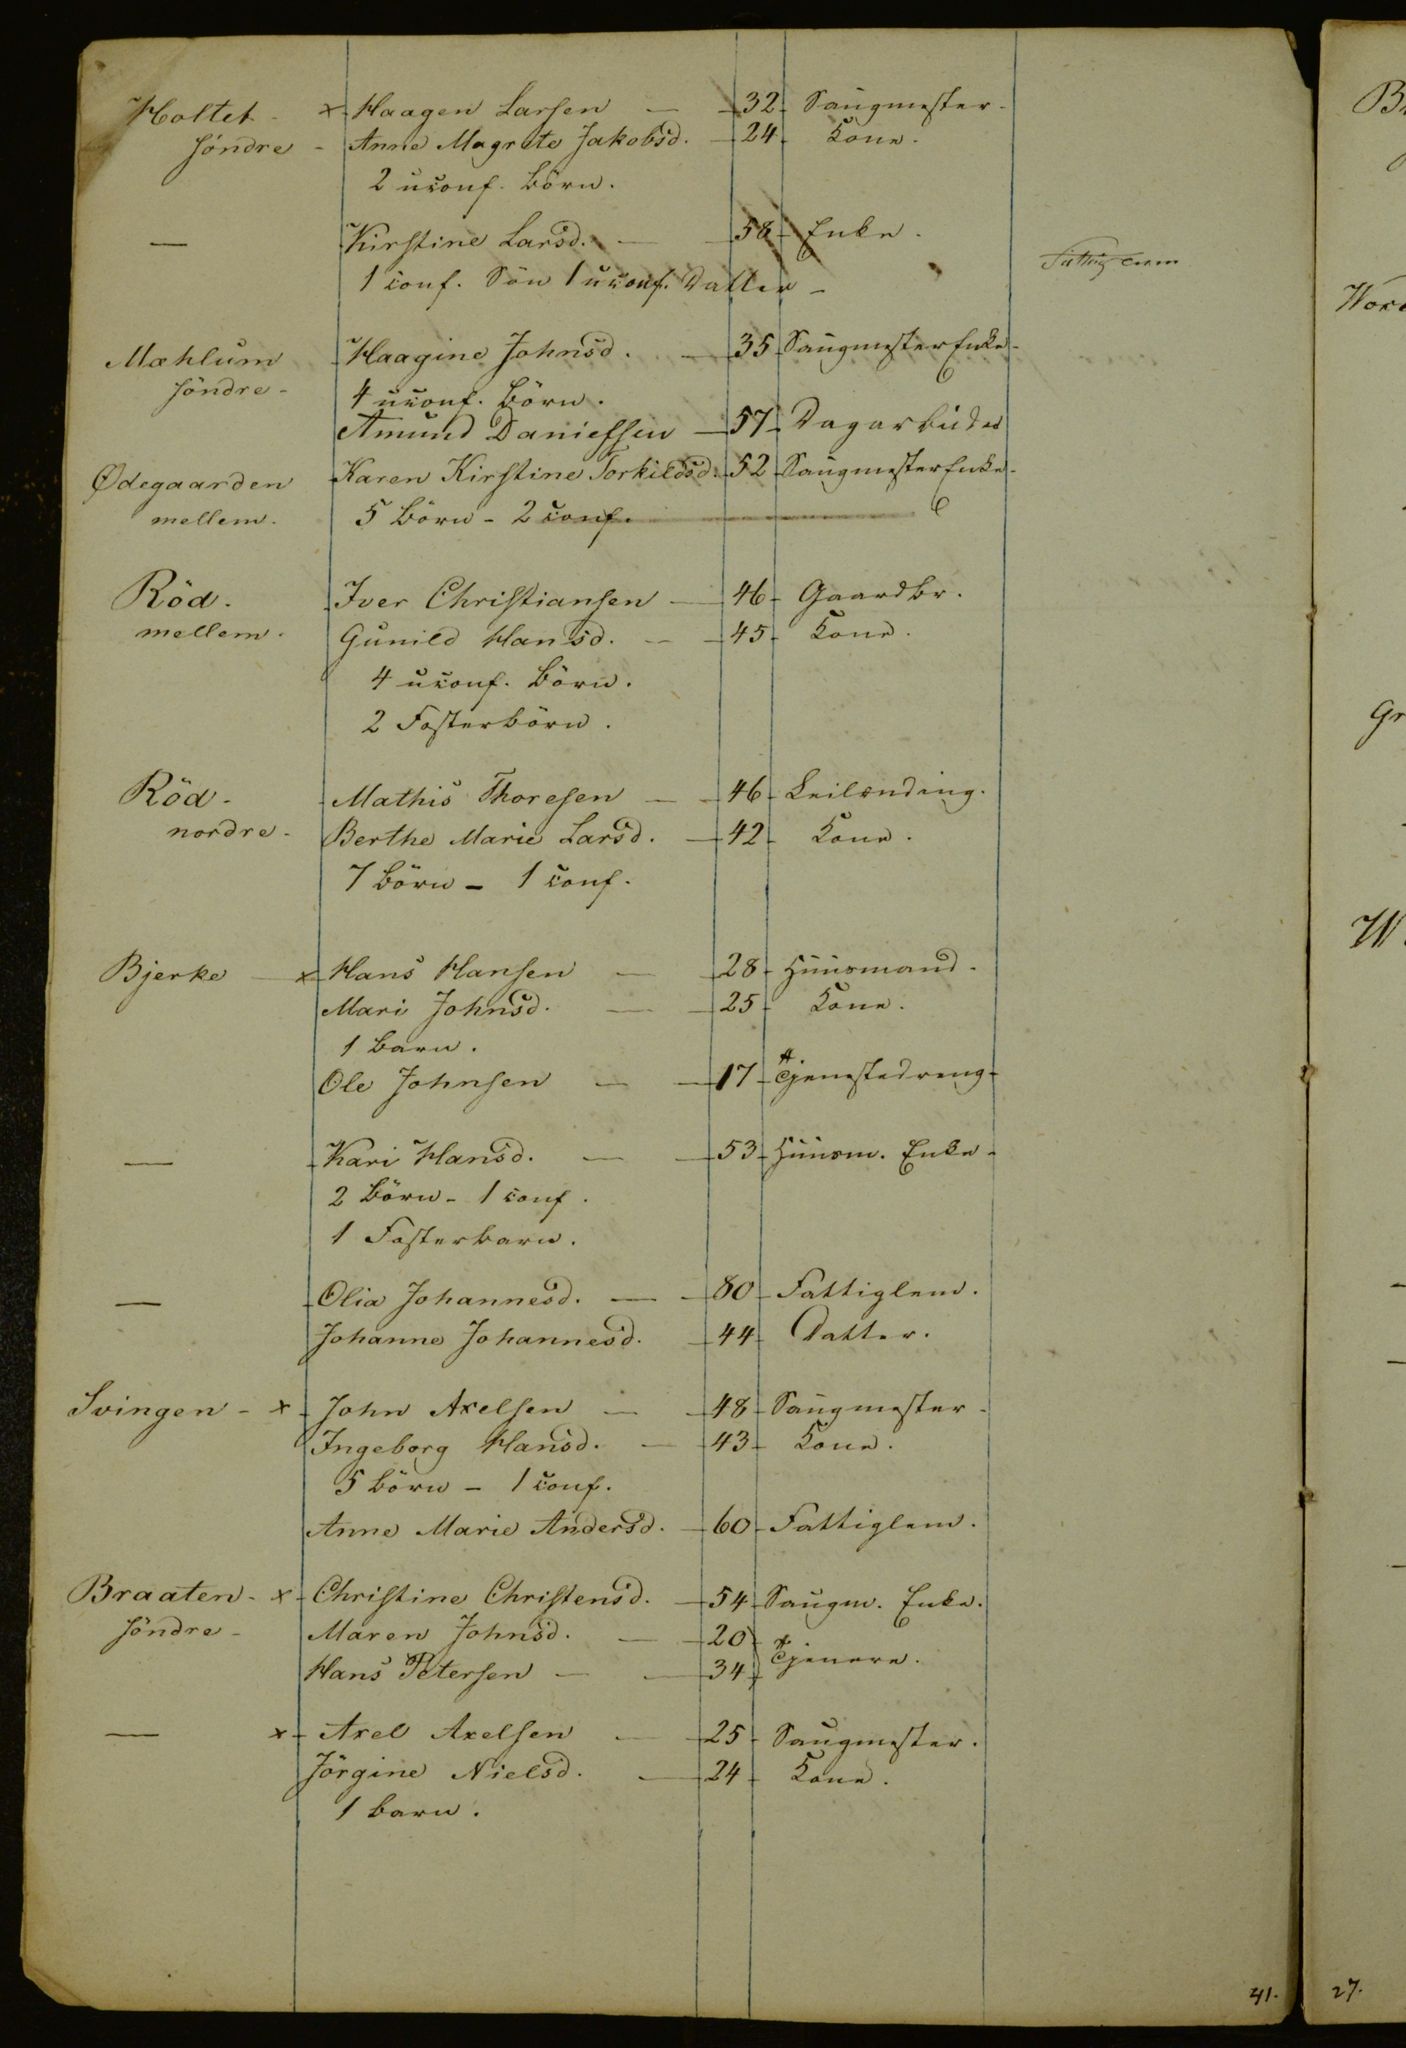 Holtet - x Haagen Larsen — 32 - Saugmester -
söndre - Anne Magrete Jakobsd. - 24 - Kone.
2 uconf. börn.
— Kirstine Larsd. — 58 - Enke.
1 conf. Sön 1 uconf. Datter -
Mæhlum Haagine Johnsd. — 35 - SaugmesterEnke -
söndre - 4 uconf. börn.
Amund Danielsen — 57 - Dagarbeider
Ødegaarden Karen Kirstine Torkildsd. 52 - SaugmesterEnke -
mellem. 5 börn - 2 conf.
Röd. Iver Christiansen — 46 - Gaardbr.
mellem. Gunild Hansd. — 45 - Kone.
4 uconf. börn.
2 Fosterbörn.
Röd - Mathis Thoresen — 46 - Leilænding.
nordre - Berthe Marie Larsd. — 42 - Kone.
7 börn - 1 conf.
Bjerke — x Hans Hansen — 28 - Huusmand.
Mari Johnsd. — 25 - Kone.
1 barn.
Ole Johnsen — 17 - Tjenestedreng -
— Kari Hansd. — 53 - Huusm. Enke -
2 börn - 1 conf.
1 Fosterbarn.
— Olia Johannesd. — 80 - Fattiglem.
Johanne Johannesd. - 44 - Datter.
Svingen - x - John Axelsen — 48 - Saugmester -
Ingeborg Hansd. — 43 - Kone.
5 börn - 1 conf.
Anne Marie Andersd. - 60 - Fattiglem.
Braaten - x - Christine Christensd. - 54 - Saugm. Enke.
söndre - Maren Johnsd. — 20
Hans Petersen — 34 Tjenere.
— x - Axel Axelsen — 25 - Saugmester.
Jörgine Nielsd. — 24 - Kone.
1 barn.
41.
27.